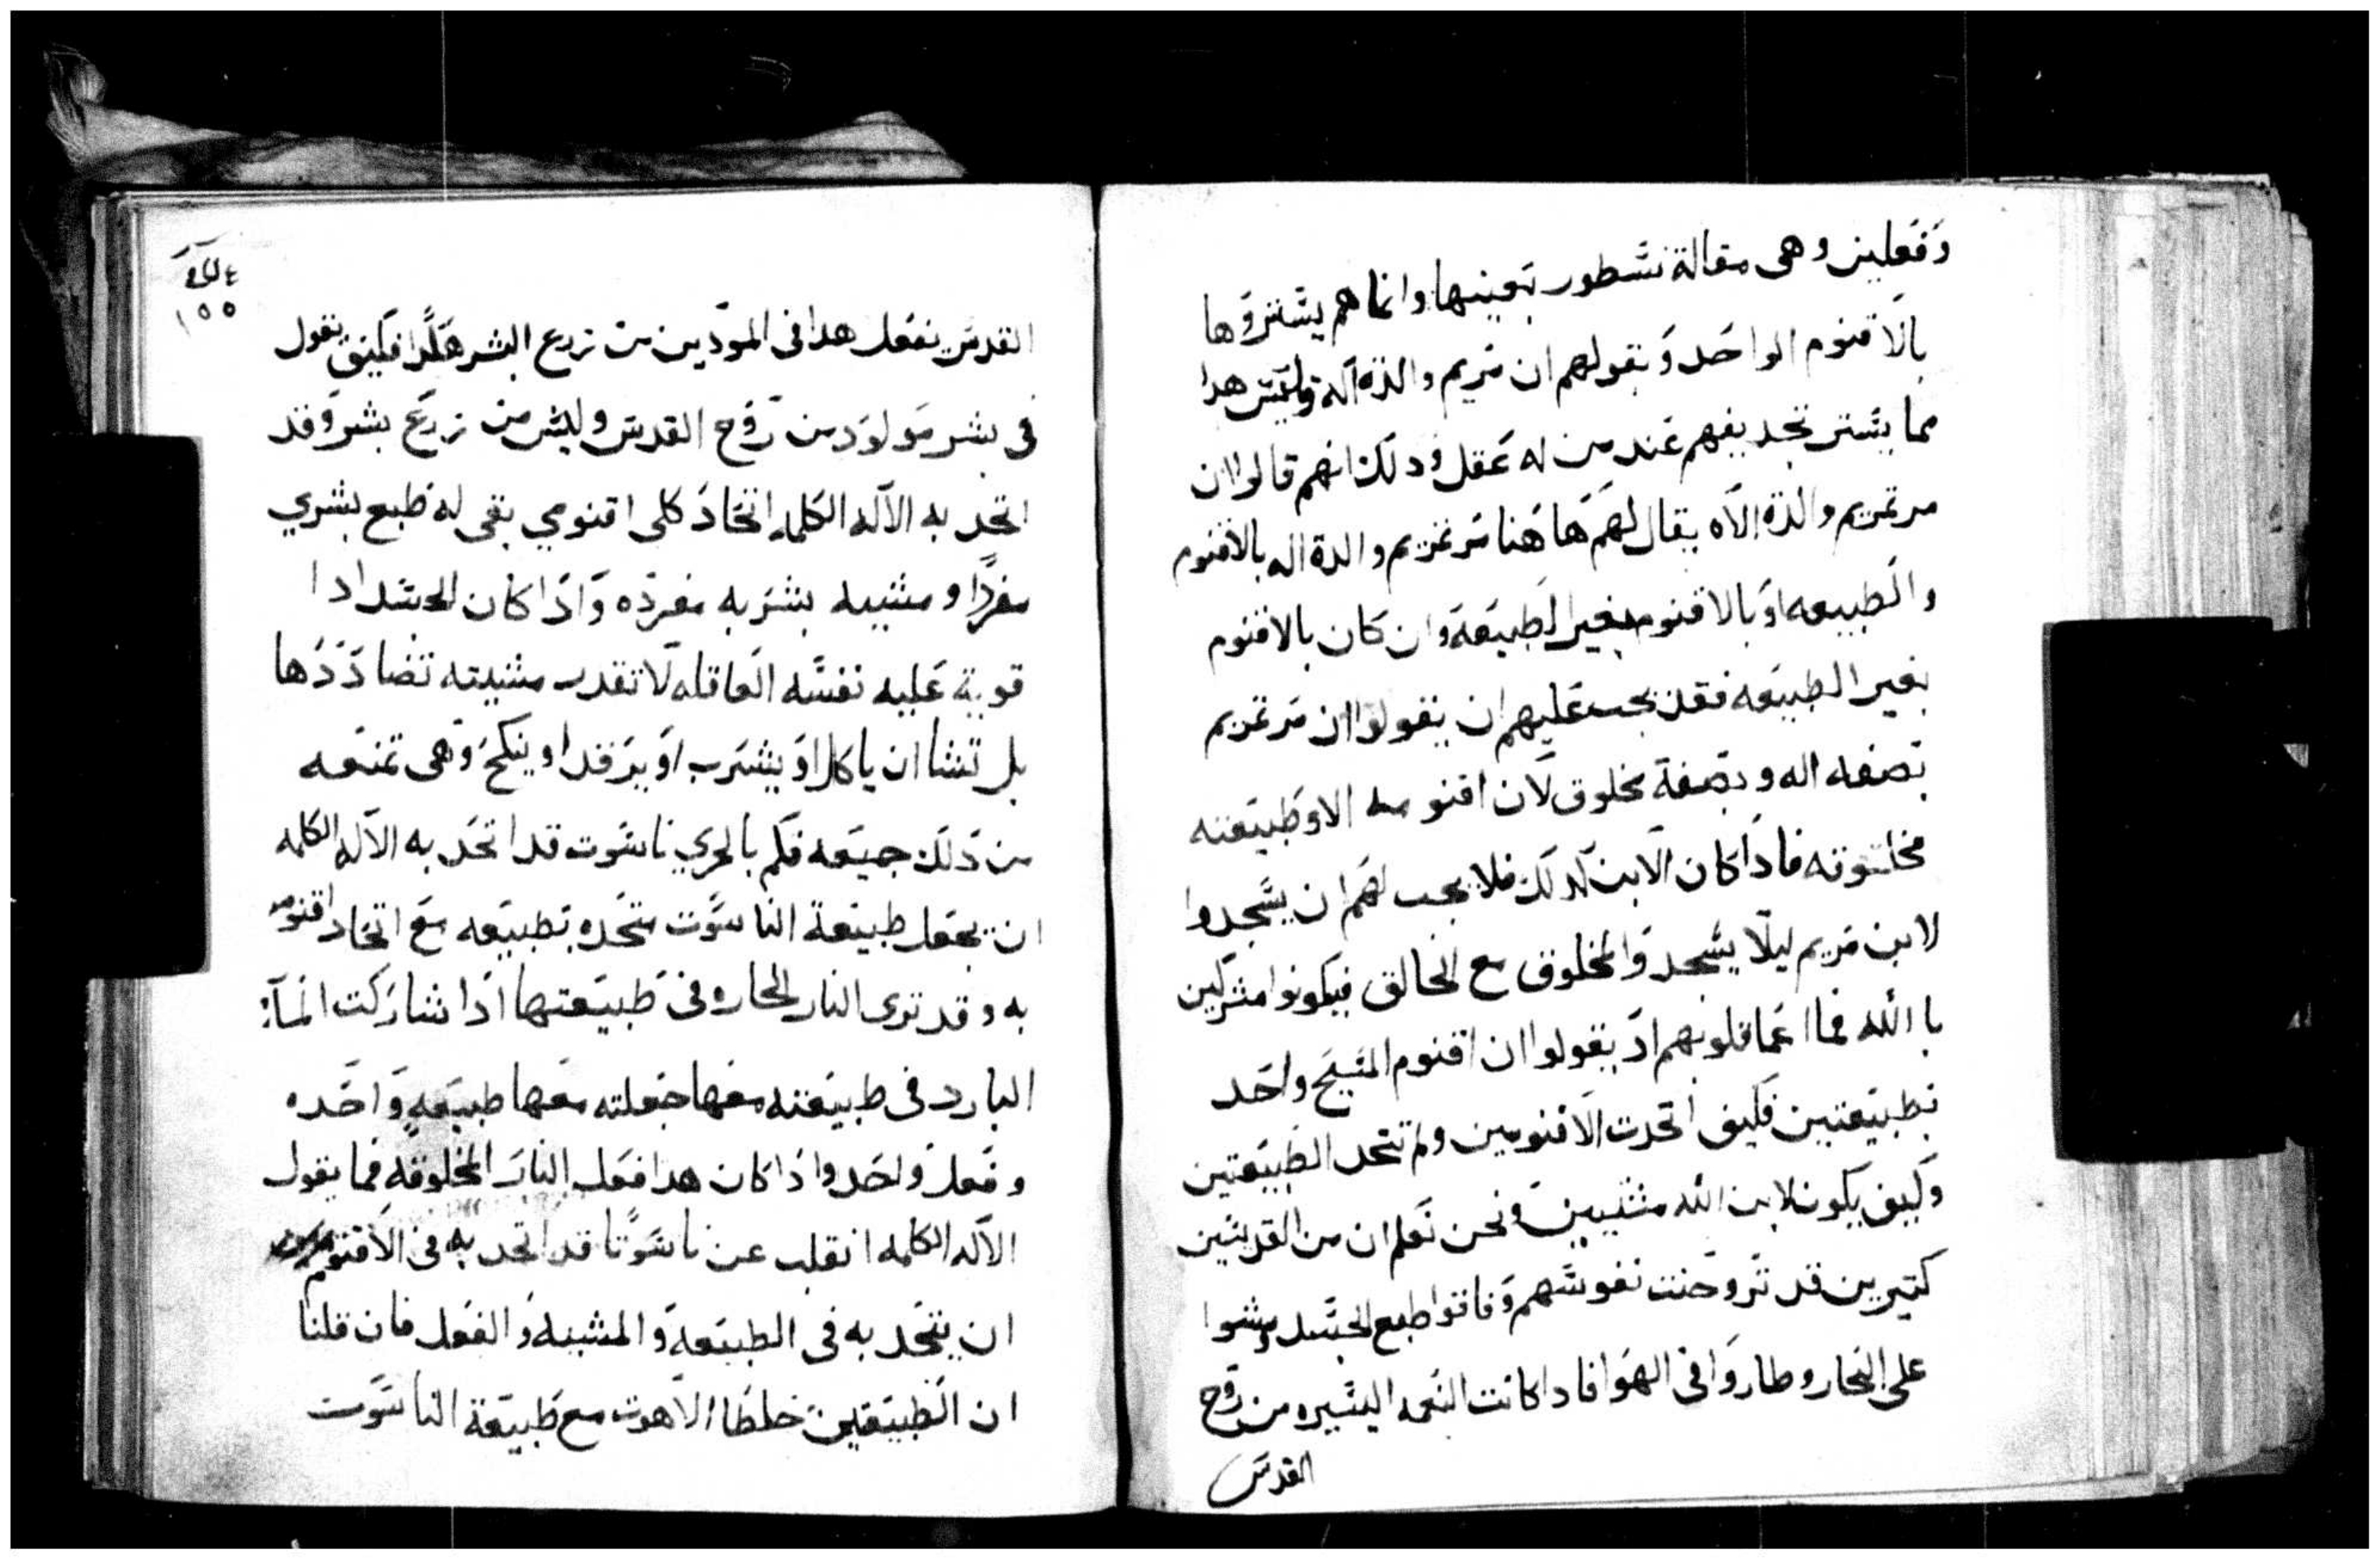 وفعلين وهى مقالة نسطور بعينها وانما هم يستروها
بالاقنوم الواحد وبقولهم ان مريم والدة اله وليس هدا
مما يستر تجديفهم عند من له عقل ودلك انهم قالوا ان
مرتمريم والدة الاه يقال لهم هاهنا مرتمريم والدة اله بالاقنوم
والطبيعه او بالاقنوم بغير الطبيعة وان كان بالاقنوم
بغير الطبيعه فقد يجب عليهم ان يقولوا ان مرتمريم
بصفه اله وبصفة مخلوق لان اقنومه الاه وطبيعته
مخلوقه فاذا كان الابن كدلك فلا يجب لهم ان يسجدوا
لابن مريم ليلا يسجدوا لمخلوق مع الخالق فيكونوا مشركين
بالله فما اعما قلوبهم اد يقولوا ان اقنوم المسيح واحد
بطبيعتين فكيف اتحدت الاقنومين ولم تتحد الطبيعتين
وكيف يكون لابن الله مشيتين ونحن نعلم ان من القديسين
كتيرين قد تروحنت نفوسهم وفاقوا طبع الجسد ومشوا
على البحار وطاروا فى الهوا فادا كانت النعمه اليسيره من روح
القدس
١٥٥
القدس يفعل هدا فى المودين من زرع البشر هكدا فكيف نقول
فى بشر مولود من روح القدس وليس من زرع بشر وقد
اتحد به الاله الكلمه اتحاد كلى اقنومي بقى له طبع بشري
مفردا ومشيه بشريه مفرده واذا كان الجسد ادا
قوية عليه نفسه العاقله لا تقدر مشيته تضاددها
بل تشا ان ياكل او يشرب او يرقد او ينكح وهى تمنعه
من دلك جميعه فكم بالحري ناسوت قد اتحد به الاله الكلمه
ان يجعل طبيعة الناسوت متحده بطبيعه مع اتحاد اقنومه
به وقد نرى النار الحاره فى طبيعتها اذا شاركت الماء
البارد فى طبيعته معها جعلته معها طبيعه واحده
وفعل واحد واذا كان هدا فعل النار المخلوقه فما يقول
الاله الكلمه انقلب عن ناسوتا قد اتحد به فى الاقنوم
ان يتحد به فى الطبيعة والمشيه والفعل فان قلنا
ان الطبيعتين خلطا الاهوت مع طبيعة الناسوت